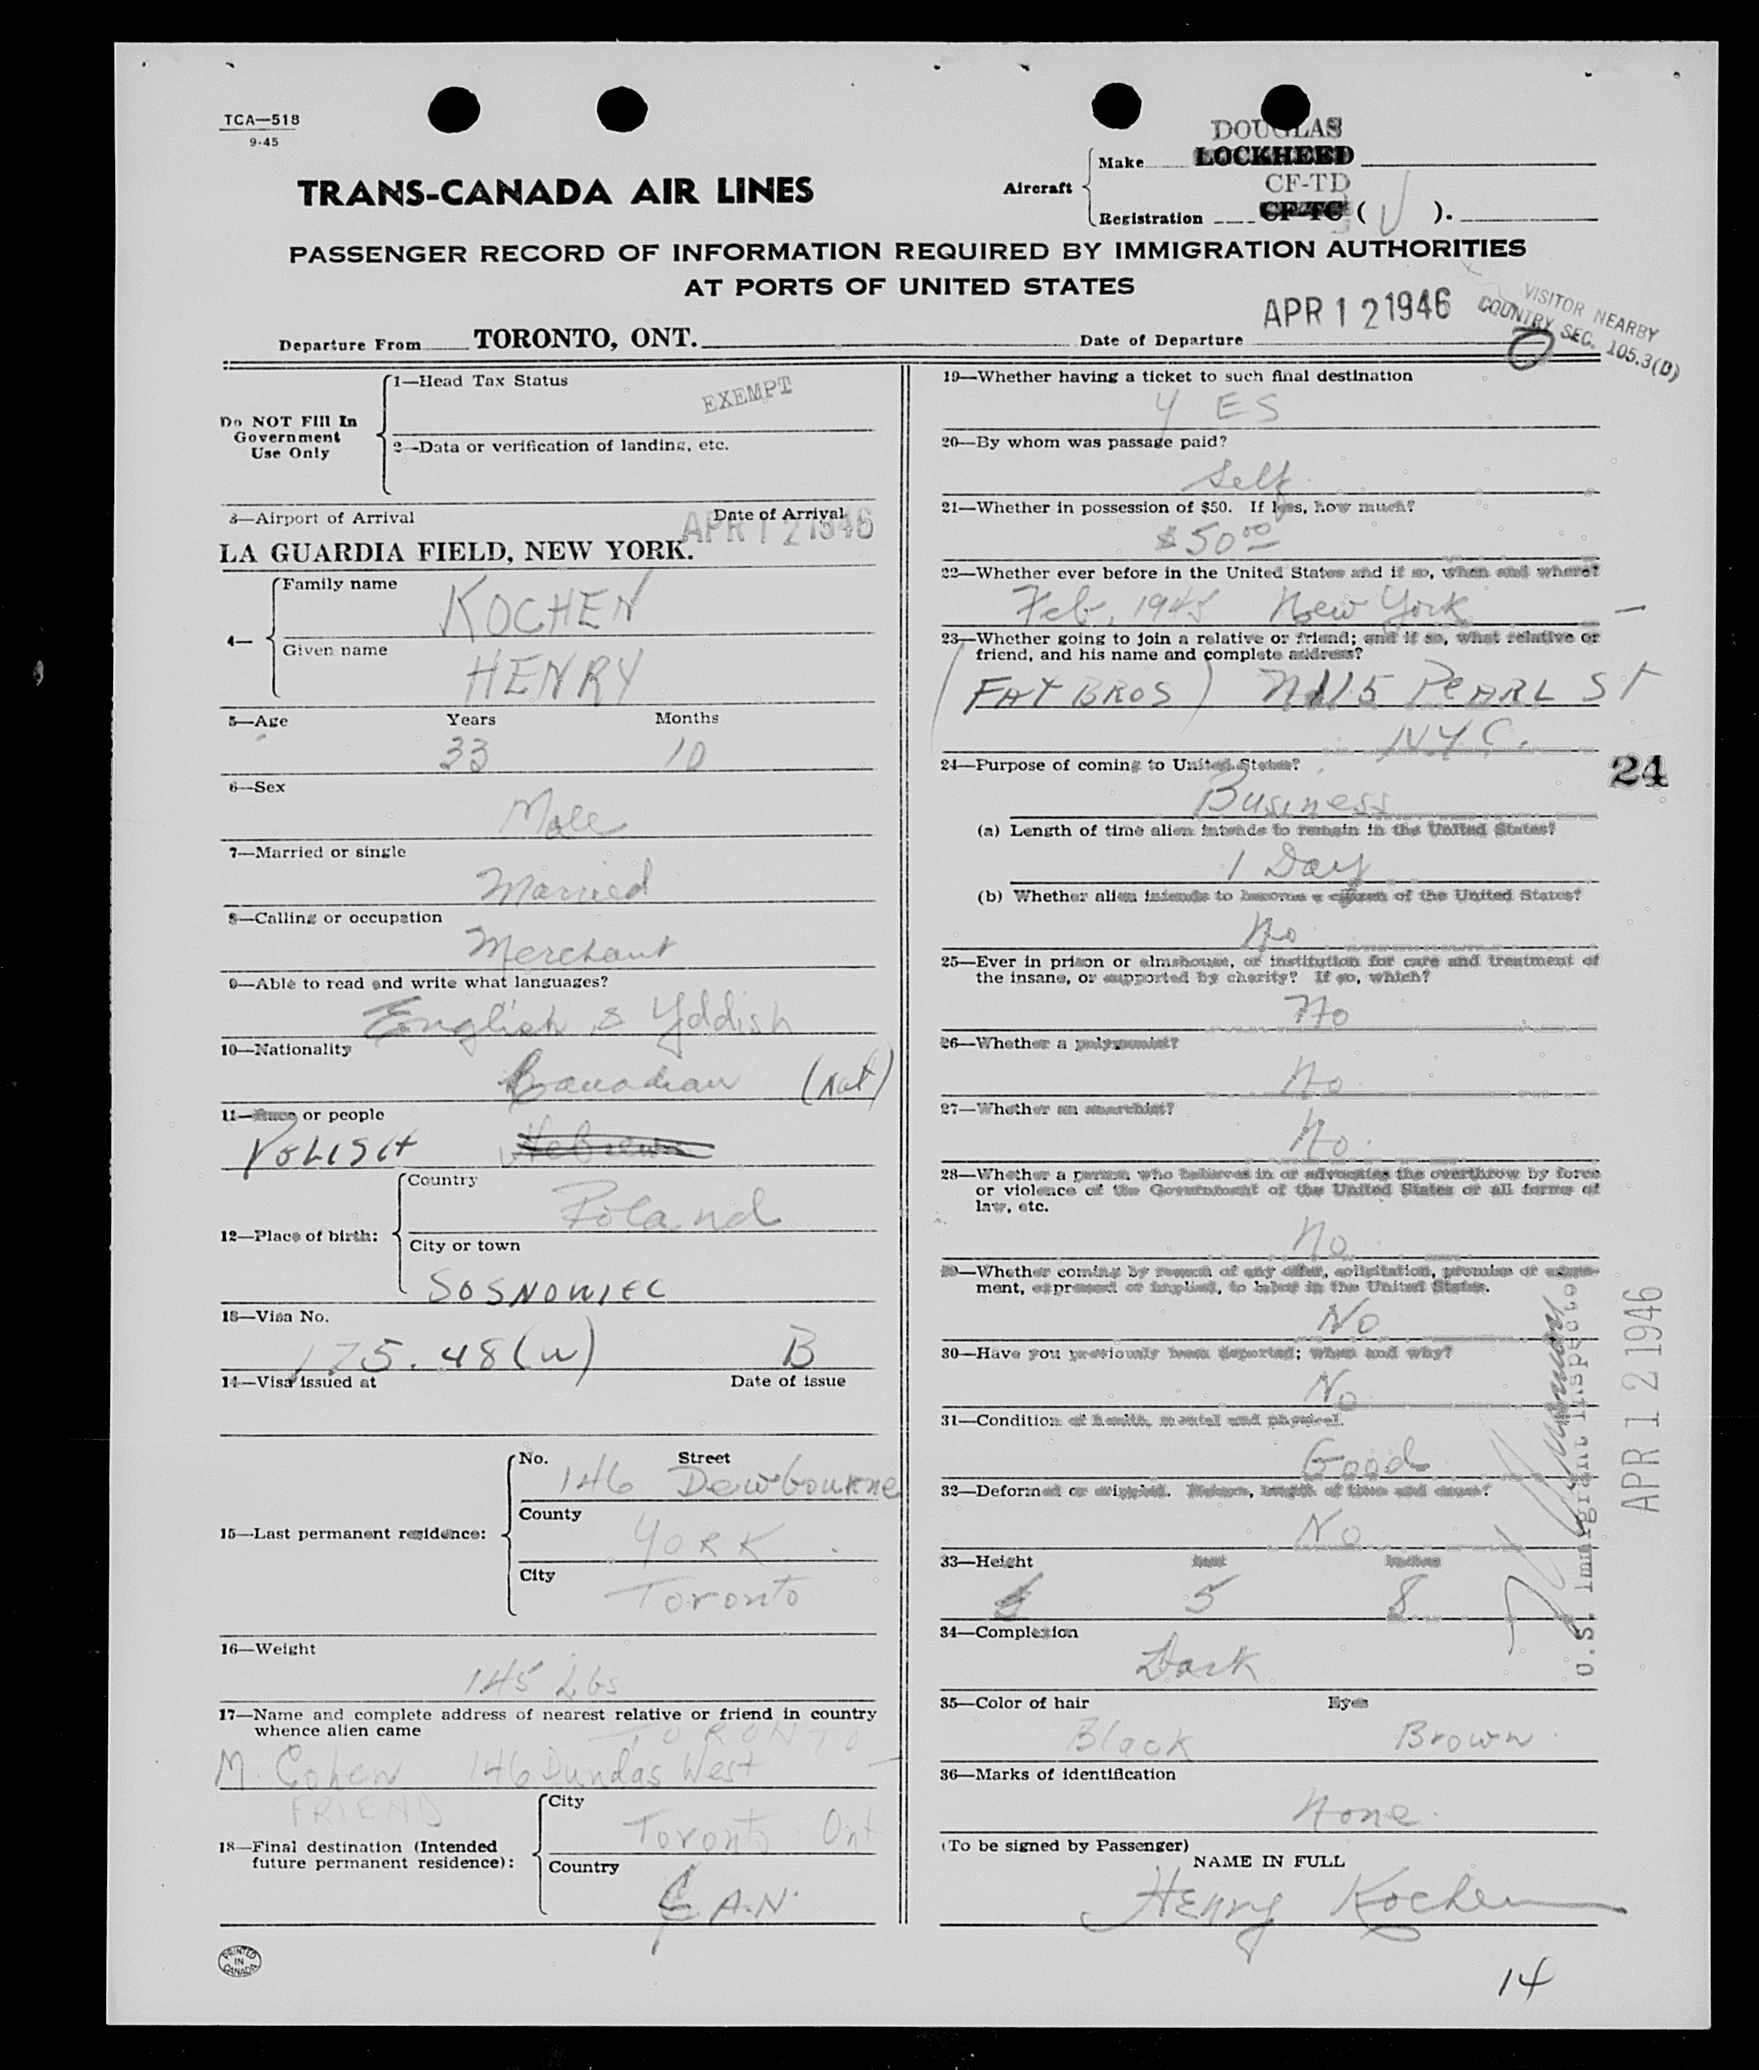 TCA—518
9-45
DOUGLAS
Make LOCKHEED
Aircraft
CF-TD
Registration CF-TC ( ).
TRANS-CANADA AIR LINES
PASSENGER RECORD OF INFORMATION REQUIRED BY IMMIGRATION AUTHORITIES
AT PORTS OF UNITED STATES
VISITOR NEARBY
COUNTRY SEC. 105.3(B)
Departure From TORONTO, ONT. Date of Departure APR 12 1946
Do NOT Fill In
Government
Use Only
1—Head Tax Status
EXEMPT
2—Data or verification of landing, etc.
3—Airport of Arrival Date of Arrival
LA GUARDIA FIELD, NEW YORK. APR 12 1946
4— Family name
KOCHEN
Given name
HENRY
5—Age Years Months
33 10
6—Sex
Male
7—Married or single
Married
8—Calling or occupation
Merchant
9—Able to read and write what languages?
English & Yddish
10—Nationality
Canadian (Nat)
11—Race or people
POLISH Hebrew
12—Place of birth:
Country
Poland
City or town
SOSNOWIEC
13—Visa No.
175.48(w) B
14—Visa issued at Date of issue
15—Last permanent residence:
No. Street
146 Dewbourne
County
YORK
City
Toronto
16—Weight
145 Lbs
17—Name and complete address of nearest relative or friend in country
whence alien came
TORONTO
M. Cohen 146 Dundas West
FRIEND
18—Final destination (Intended
future permanent residence):
City
Toronto Ont
Country
CAN.
PRINTED
IN
CANADA
19—Whether having a ticket to such final destination
YES
20—By whom was passage paid?
Self.
21—Whether in possession of $50. If less, how much?
$50.00
22—Whether ever before in the United States and if so, when and where?
Feb. 1945 New York
23—Whether going to join a relative or friend; and if so, what relative or
friend, and his name and complete address?
(FAY BROS) 115 PEARL ST
NYC.
24—Purpose of coming to United States?
24
Business
(a) Length of time alien intends to remain in the United States?
1 Day
(b) Whether alien intends to become a citizen of the United States?
No
25—Ever in prison or almshouse, or institution for care and treatment of
the insane, or supported by charity? If so, which?
No
26—Whether a polygamist?
No
27—Whether an anarchist?
No.
28—Whether a person who believes in or advocates the overthrow by force
or violence of the Government of the United States or all forms of
law, etc.
No
29—Whether coming by reason of any offer, solicitation, promise or agree-
ment, expressed or implied, to labor in the United States.
No
30—Have you previously been deported; when and why?
No
31—Condition of health, mental and physical.
Good
32—Deformed or crippled. Nature, length of time and cause?
No
33—Height feet inches
5 8
34—Complexion
Dark
35—Color of hair Eyes
Black Brown
36—Marks of identification
None.
(To be signed by Passenger)
NAME IN FULL
Henry Kochen
U.S. Immigrant Inspector
APR 12 1946
14